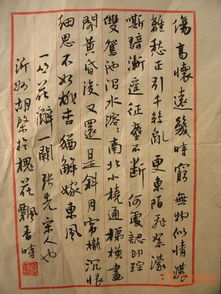 傷高懷遠幾時窮無物似情濃
離愁正引千絲亂更東陌飛絮濛
嘶騎漸遙征塵不斷何處認郎踪
雙鴛池沼水溶溶南北小橈通梯橫畫
閣黃昏後又還是斜月簾櫳沉恨
細思不如桃杏猶解嫁東風
一丛花 一闋張先宋人也
沂州胡 於槐花飄香時